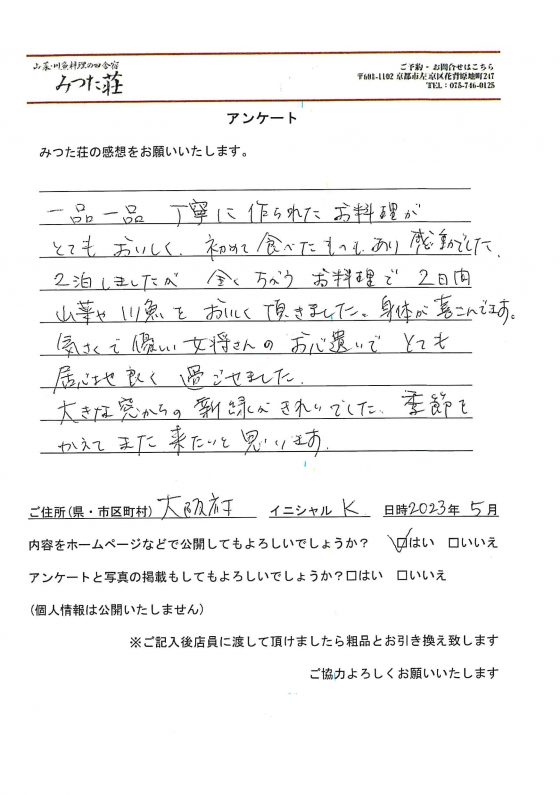 山菜・川魚料理の田舎宿
みつた荘
ご予約・お問合せはこちら
〒601-1102 京都市左京区花背原地町247
TEL：075-746-0125
アンケート
みつた荘の感想をお願いいたします。
一品一品 丁寧に作られたお料理が
とても おいしく、初めて食べたものもあり感動でした。
2泊しましたが 全くちがうお料理で 2日間
山菜や川魚を おいしく頂きました。身体が喜こんでます。
気さくで優しい女将さんのお心遣いで とても
居心地良く 過ごせました。
大きな窓からの新緑がきれいでした。季節を
かえてまた来たいと思います。
ご住所(県・市区町村) 大阪府 イニシャル K 日時2023年 5月
内容をホームページなどで公開してもよろしいでしょうか？ ☑はい □いいえ
アンケートと写真の掲載もしてもよろしいでしょうか？□はい □いいえ
(個人情報は公開いたしません)
※ご記入後店員に渡して頂けましたら粗品とお引き換え致します
ご協力よろしくお願いいたします